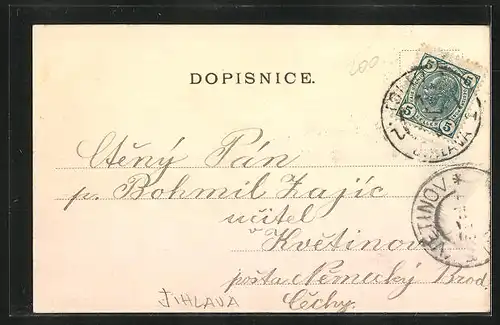 200
DOPISNICE.
5 5
5 5
JIHLAVA
KVĚTINOV *
Ctěný Pán
p. Bohmil Zajíc
učitel
v Květinov
pošta Německý Brod
Čechy.
JIHLAVA